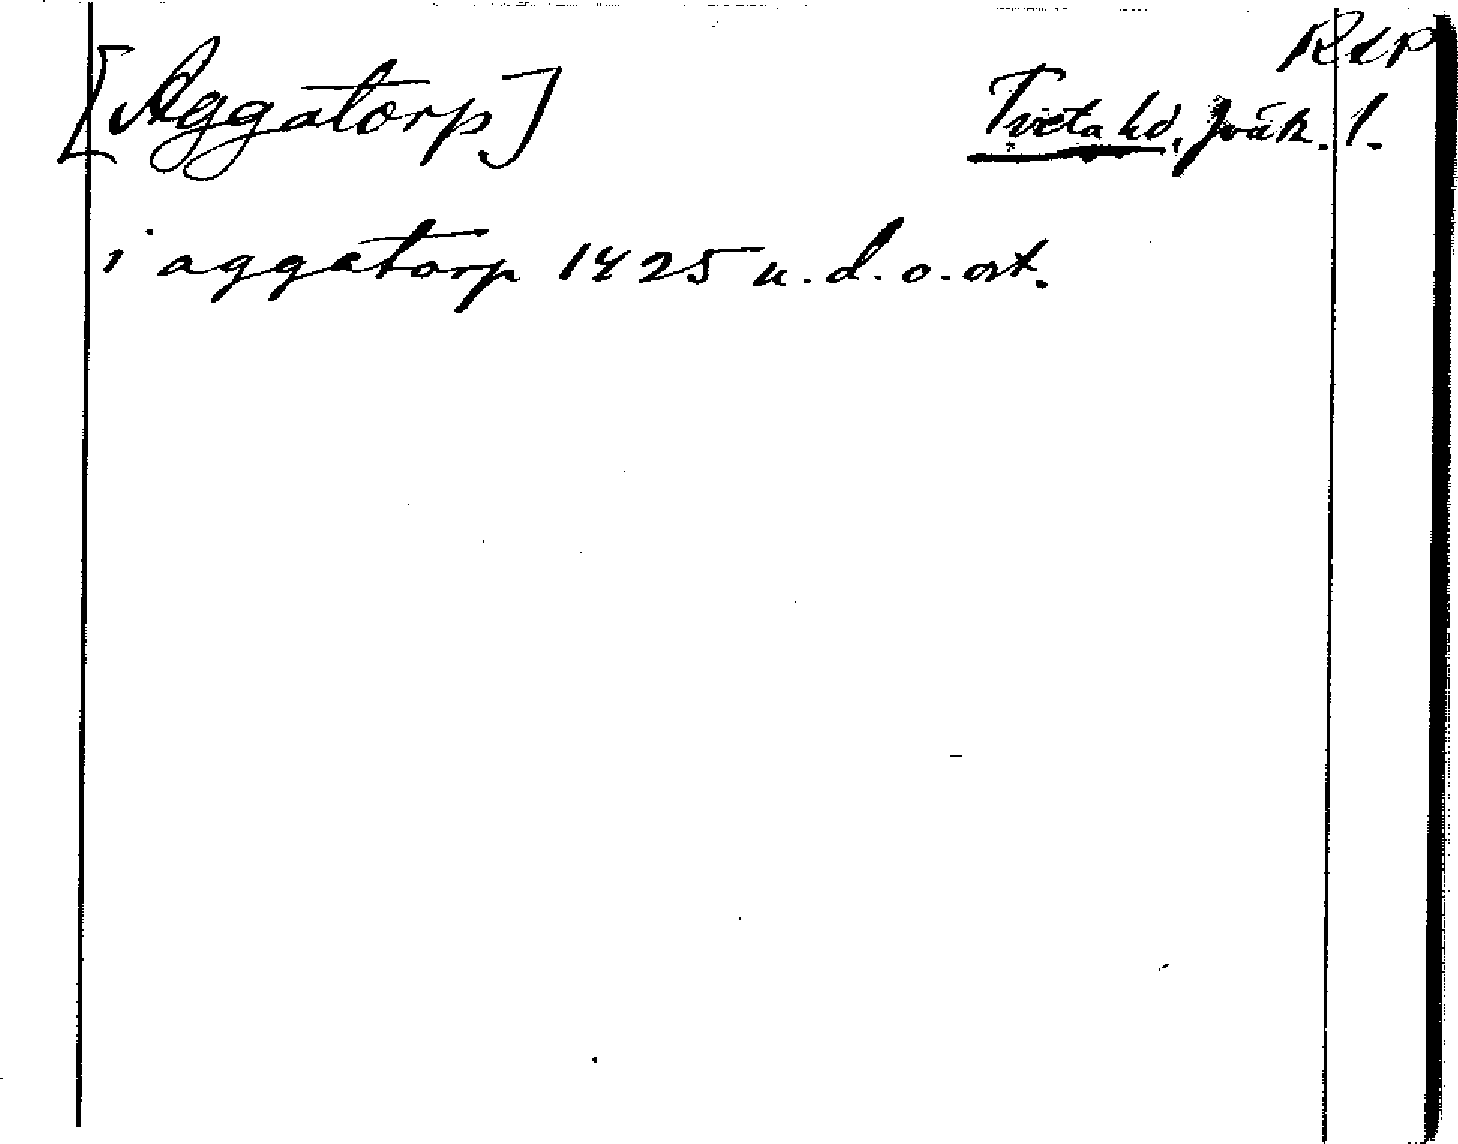 RAP
[Aggatorp] Tveta hd, Jönk. l.
i aggatorp 1425 u. d. o. ort.